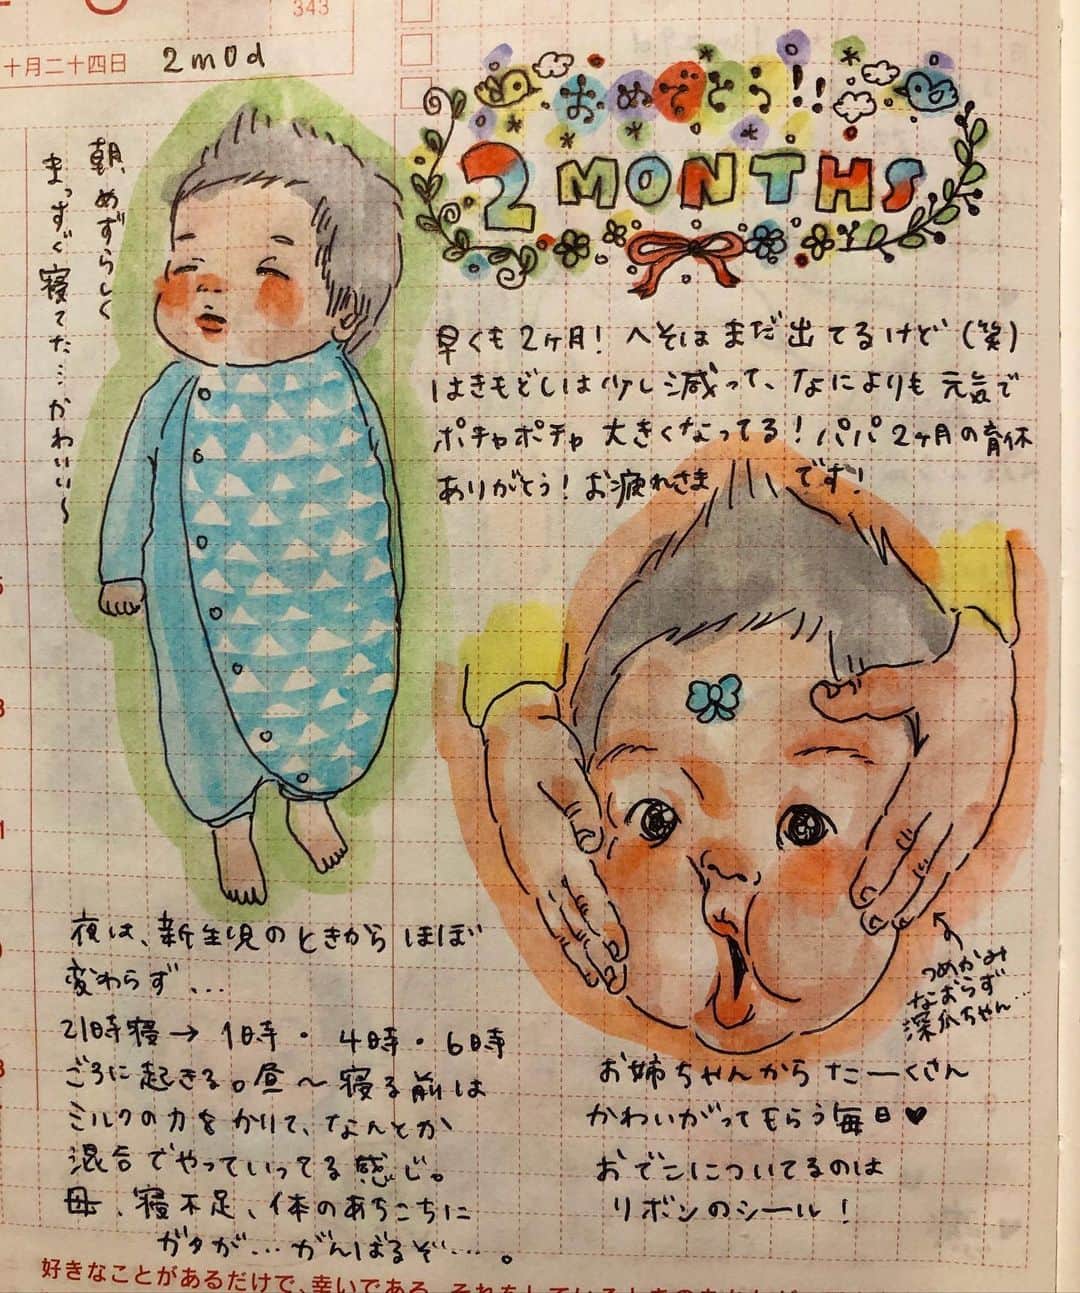 343
十月二十四日 2m0d
おめでとう!!
2 MONTHS
朝、めずらしく
まっすぐ寝てた…かわいい〜
早くも2ヶ月！へそはまだ出てるけど（笑）
はきもどしは少し減って、なによりも元気で
ポチャポチャ大きくなってる！パパ2ヶ月の育休
ありがとう！お疲れさまです！
つめかみ
なおらず
深爪ちゃん…
夜は、新生児のときからほぼ
変わらず…
21時寝→1時・4時・6時
ごろに起きる。昼〜寝る前は
ミルクの力をかりて、なんとか
混合でやっていってる感じ。
母、寝不足、体のあちこちに
ガタが…がんばるぞ…。
お姉ちゃんからたーくさん
かわいがってもらう毎日♥
おでこについてるのは
リボンのシール！
好きなことがあるだけで、幸いである。